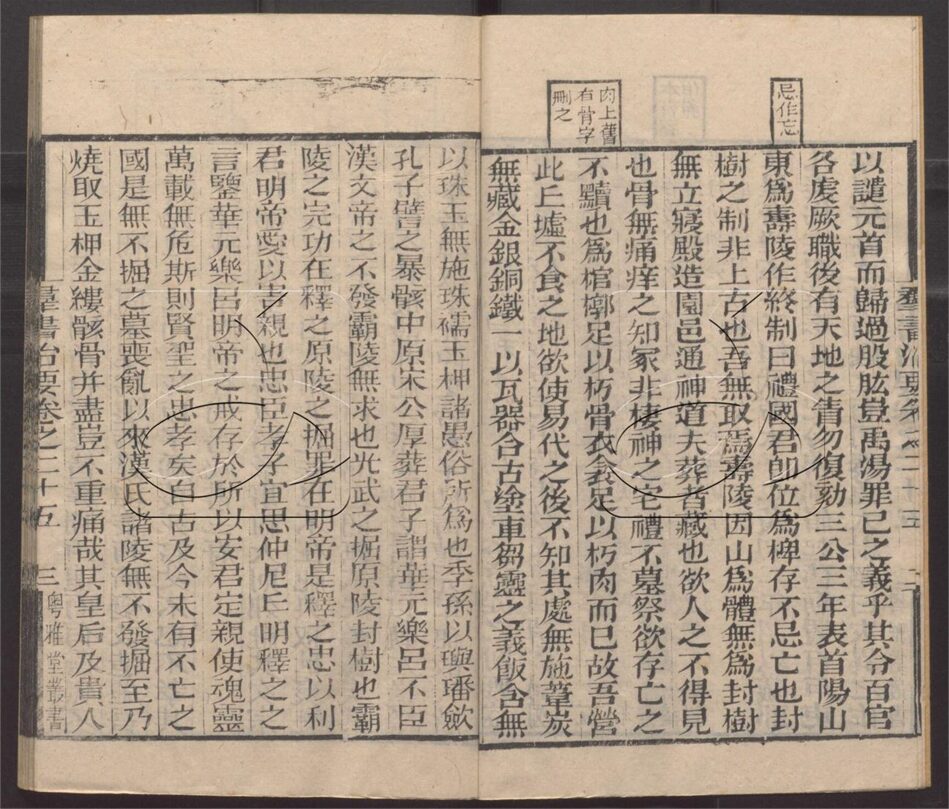 忌作忘
肉上舊
有骨字
刪之
以譴元首而歸過股肱豈禹湯罪己之義乎其令百官
各虔厥職後有天地之眚勿復劾三公三年表首陽山
東爲壽陵作終制曰禮國君卽位爲椑存不忌亡也封
樹之制非上古也吾無取焉壽陵因山爲體無爲封樹
無立寢殿造園邑通神道夫葬者藏也欲人之不得見
也骨無痛痒之知冢非棲神之宅禮不墓祭欲存亡之
不黷也爲棺槨足以朽骨衣衾足以朽肉而已故吾營
此丘墟不食之地欲使易代之後不知其處無施葦炭
無藏金銀銅鐵一以瓦器合古塗車芻靈之義飯含無
以珠玉無施珠襦玉柙諸愚俗所爲也季孫以璵璠斂
孔子譬之暴骸中原宋公厚葬君子謂華元樂呂不臣
漢文帝之不發霸陵無求也光武之掘原陵封樹也霸
陵之完功在釋之原陵之掘罪在明帝是釋之忠以利
君明帝愛以害親也忠臣孝子宜思仲尼丘明釋之之
言鑒華元樂呂明帝之戒存於所以安君定親使魂靈
萬載無危斯則賢聖之忠孝矣自古及今未有不亡之
國是無不掘之墓喪亂以來漢氏諸陵無不發掘至乃
燒取玉柙金縷骸骨并盡豈不重痛哉其皇后及貴人
羣書治要卷之二十五
三
粵雅堂叢書